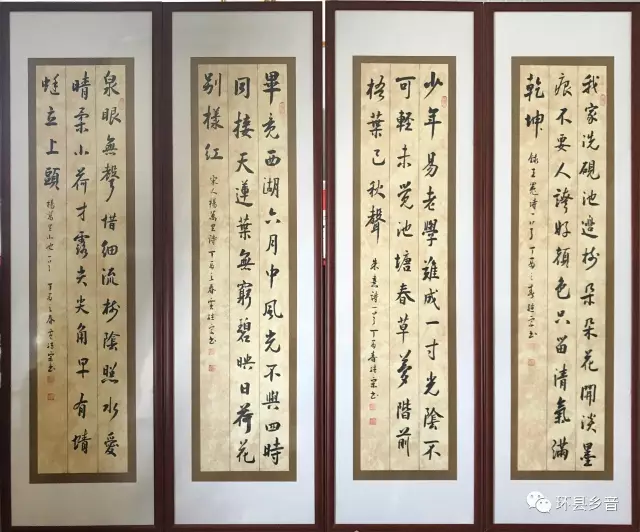 我家洗硯池邊樹朵朵花開淡墨
痕不要人誇好顏色只留清氣滿
乾坤
錄王冕詩一首丁酉之春
少年易老學難成一寸光陰不
可輕未覺池塘春草夢階前
梧葉已秋聲
朱熹詩一首丁酉春
畢竟西湖六月中風光不與四時
同接天蓮葉無窮碧映日荷花
別樣紅
宋人楊萬里詩丁酉之春
泉眼無聲惜細流樹陰照水愛
晴柔小荷才露尖尖角早有蜻
蜓立上頭
楊萬里小池一首丁酉之春
环县乡音